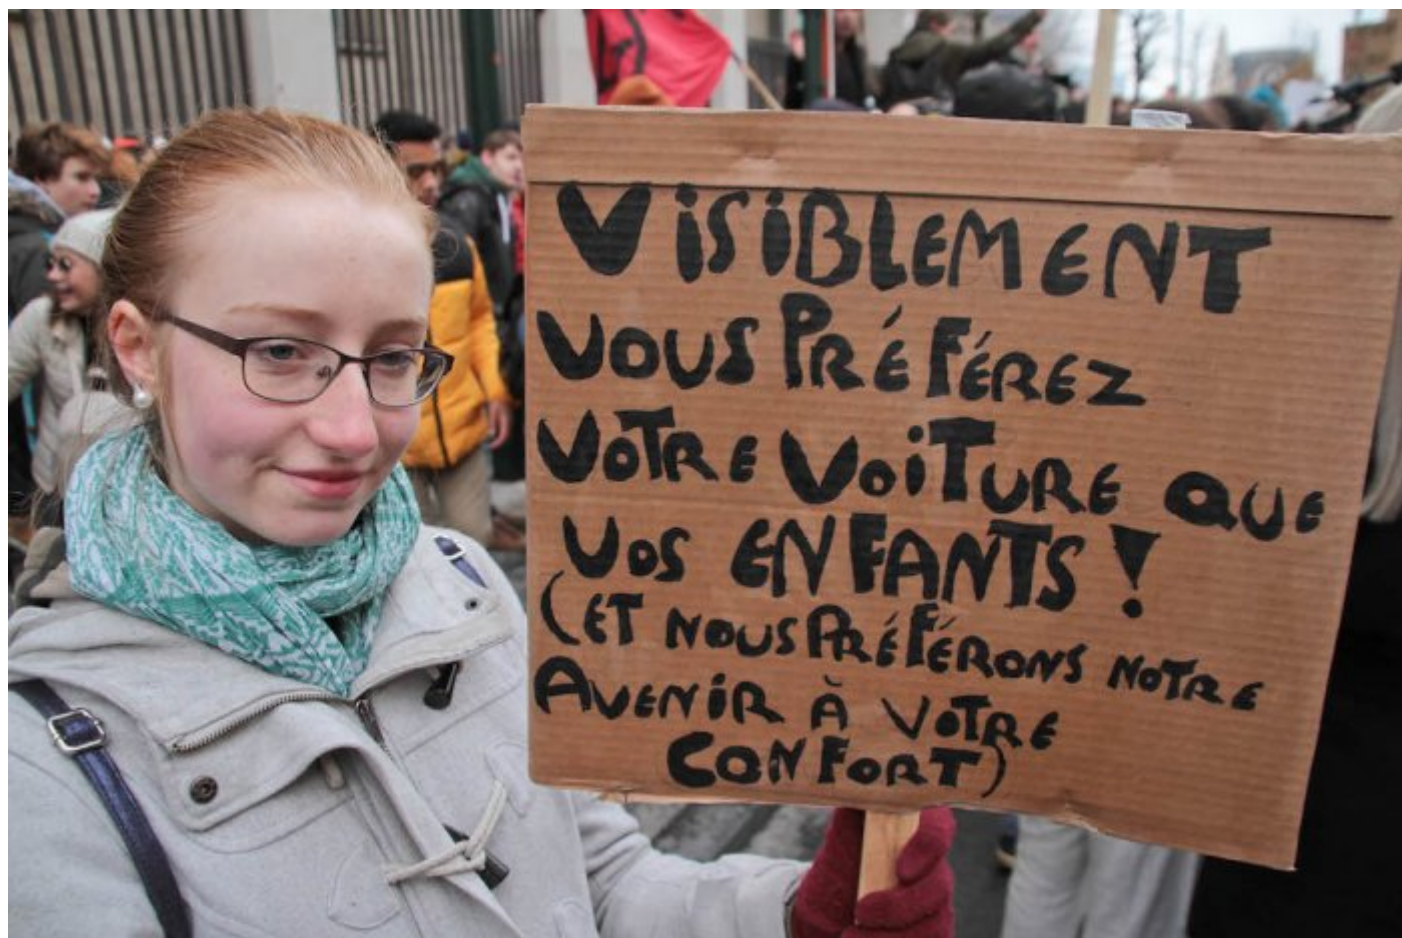 VISIBLEMENT
VOUS PRÉFÉREZ
VOTRE VOITURE QUE
VOS ENFANTS !
(ET NOUS PRÉFÉRONS NOTRE
AVENIR À VOTRE
CONFORT)